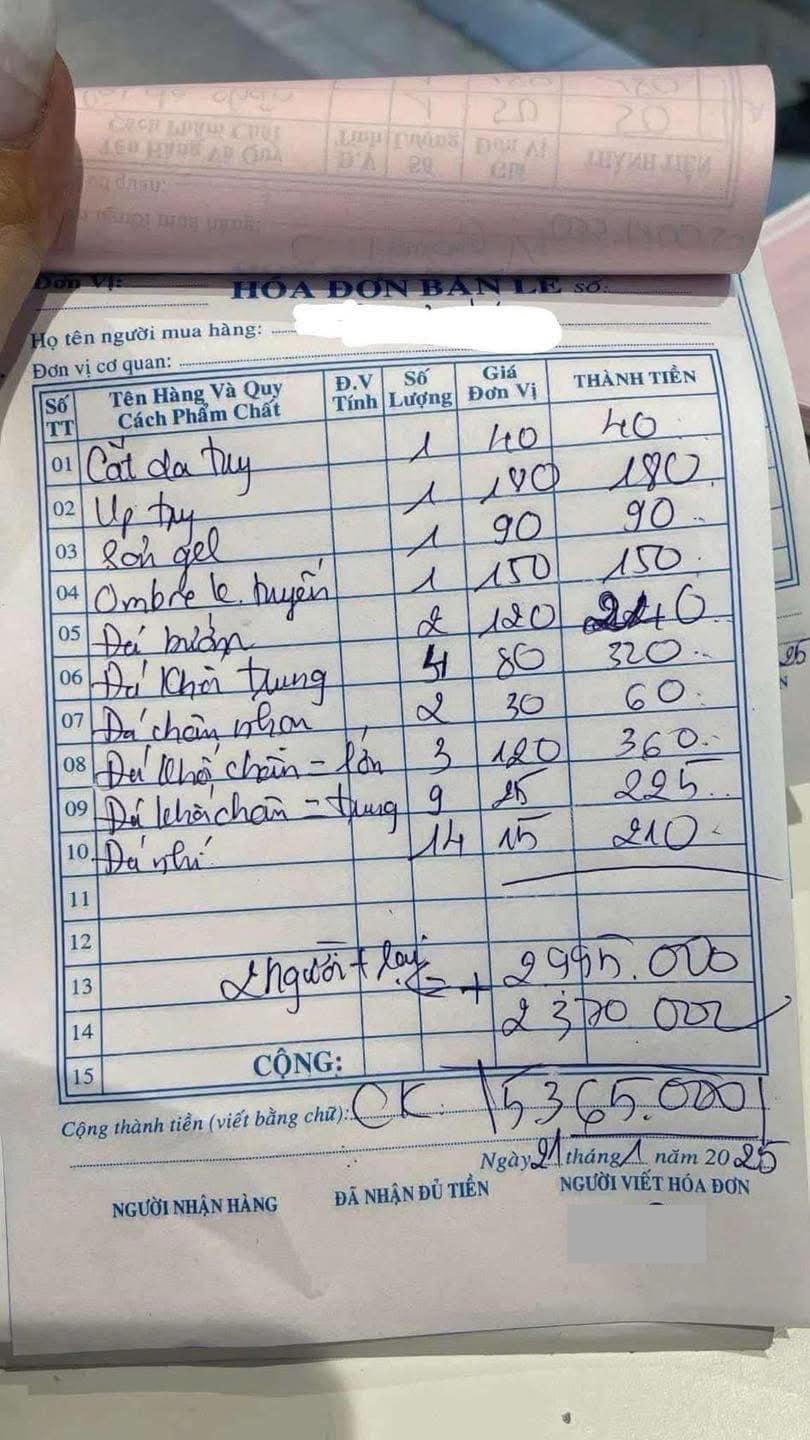 Đơn Vị:
HÓA ĐƠN BÁN LẺ Số:
Họ tên người mua hàng:
Đơn vị cơ quan:
Số TT Tên Hàng Và Quy Cách Phẩm Chất Đ.V Tính Số Lượng Giá Đơn Vị THÀNH TIỀN
01 Cắt da tay 1 40 40
02 Up tay 1 180 180
03 Sơn gel 1 90 90
04 Ombre k. tuyến 1 150 150
05 Đá 2 120 240
06 Đá khối trung 4 80 320
07 Đá chân nhọn 2 30 60
08 Đá khối chân = lớn 3 120 360
09 Đá khối chân = trung 9 25 225
10 Đá nhí 14 15 210
11
12
13 2 người + lại = + 2995.000
14 2370 000
15 CỘNG:
Cộng thành tiền (viết bằng chữ): CK. 5365.000
Ngày 21 tháng 1 năm 2025
NGƯỜI NHẬN HÀNG ĐÃ NHẬN ĐỦ TIỀN NGƯỜI VIẾT HÓA ĐƠN